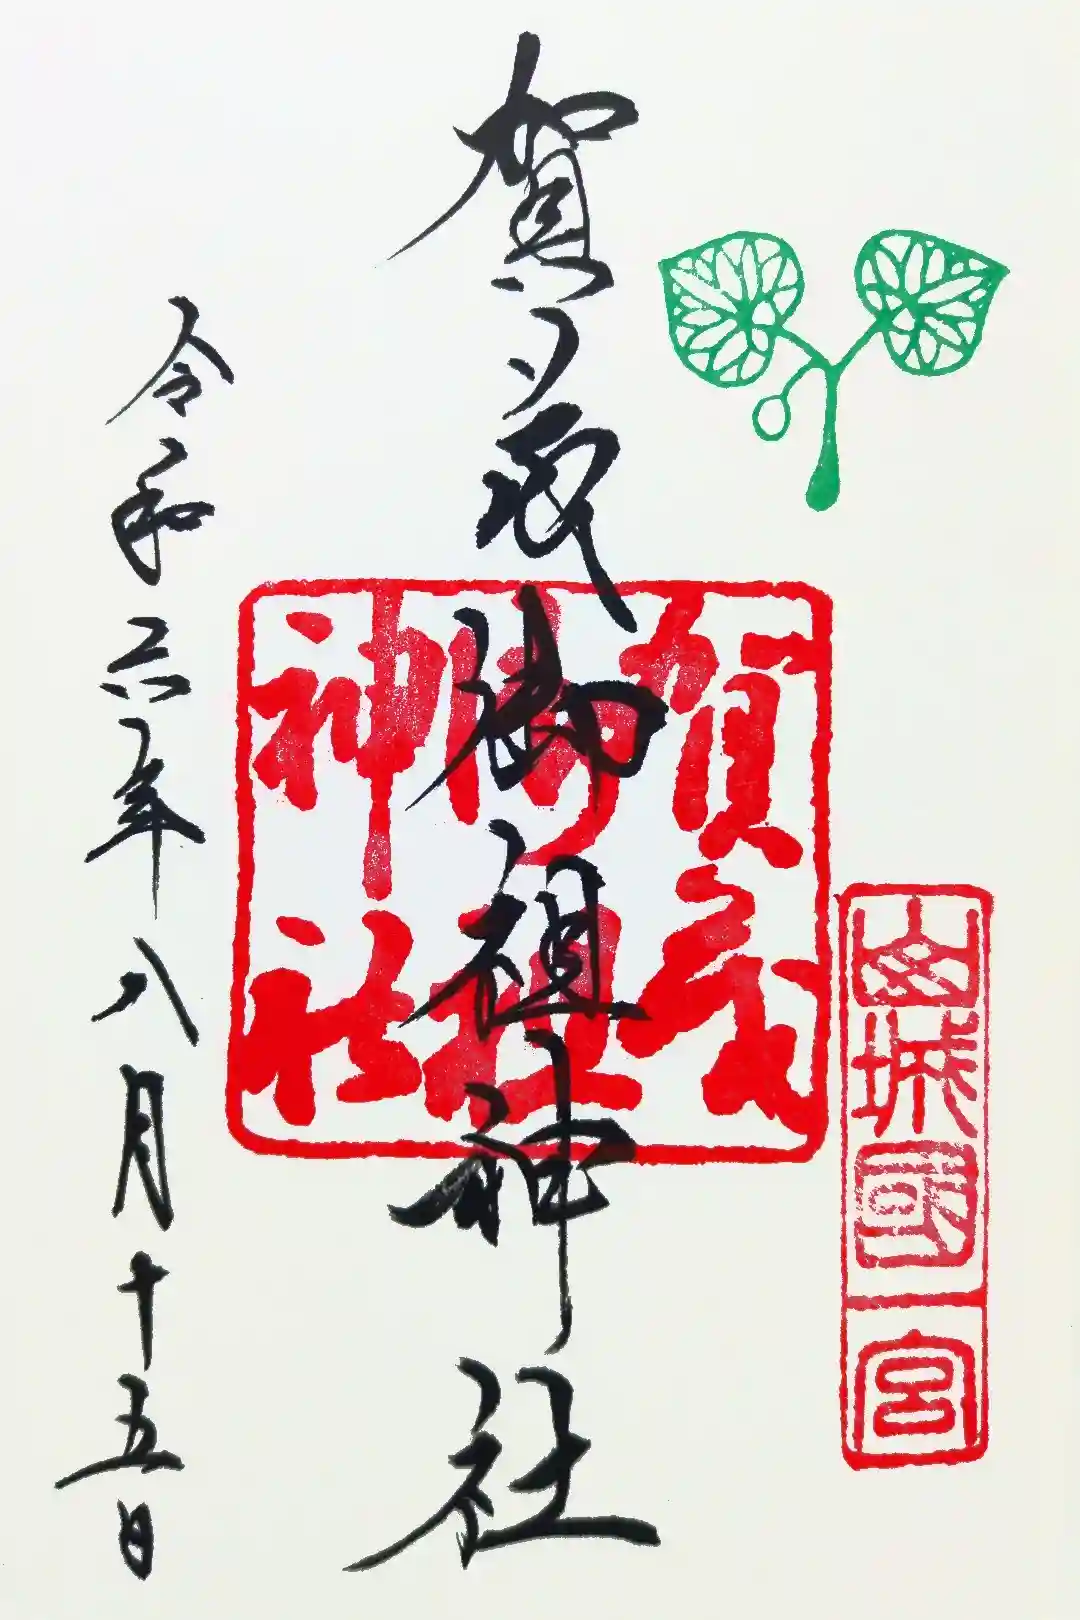 山城國一宮
賀茂御祖神社
賀茂
御祖
神社
令和六年八月十五日